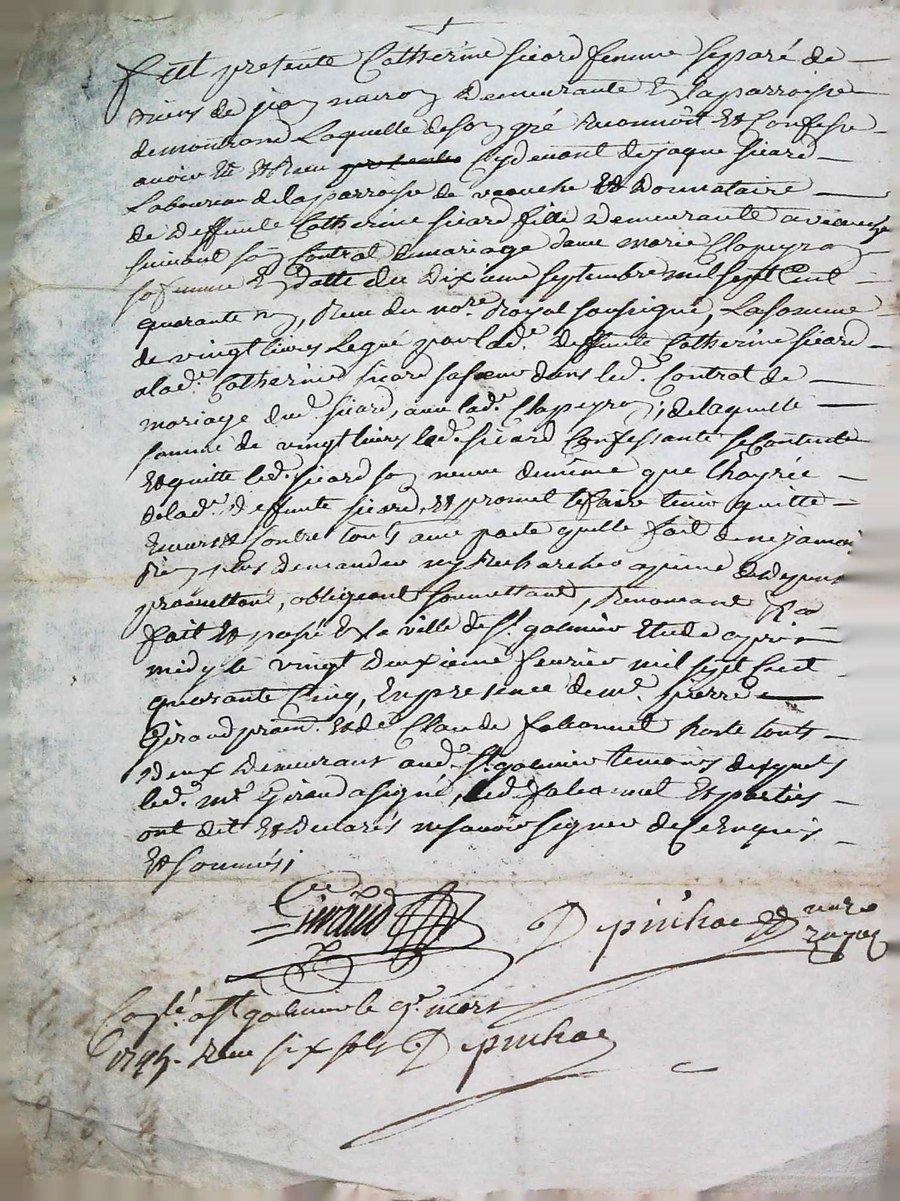 fut presente Catherine sicard femme separé de
biens de jean nairon Demeurante En la parroisse
de montrond Laquelle de son gré Reconnoit Et Confesse
avoir Eü Et Receu presente Cydevant de jaque sicard
Laboureur de la parroisse de veauche Et Donnataire
de Deffunte Catherine sicard fille Demeurante a veauche
suivant son Contrat de mariage avec marie Clapeyron
sa femme En datte du Dixieme septembre mil sept Cent
quarante un, Receu du nore. Royal soussigné, La somme
de vingt livres Legué par lade. Deffunte Catherine sicard
a lade. Catherine sicard sa soeur dans led. Contrat de
mariage dud. sicard, avec lade. Clapeyron, de laquelle
somme de vingt livres lade. sicard Confessante se Contente
Et quitte led. sicard son neveu de même que lhoyrie
de lade. deffunte sicard, Et promet le faire tenir quitte
Envers Et Contre touts avec pacte quelle fait de ne jamais
Rien plus demander ny Rechercher a peine de depens
promettant, obligeant soumettant, Renonceant &a
fait Et passé En la ville de St. galmier Etude apres
midy le vingt deuxieme fevrier mil sept Cent
quarante Cinq, En presence de me. pierre
Giraud praen. Et de Claude hoste touts
deux Demeurant aud. St. galmier temoins desquels
led. me. Giraud a signé, led. Et parties
ont dit Et declarés ne savoir signer de Ce Enquis
Et sommés;
Giraud Depinhac nore
royal
Conlé. a St galmier le 9e. mars
1745. Receu six sols Depinhac